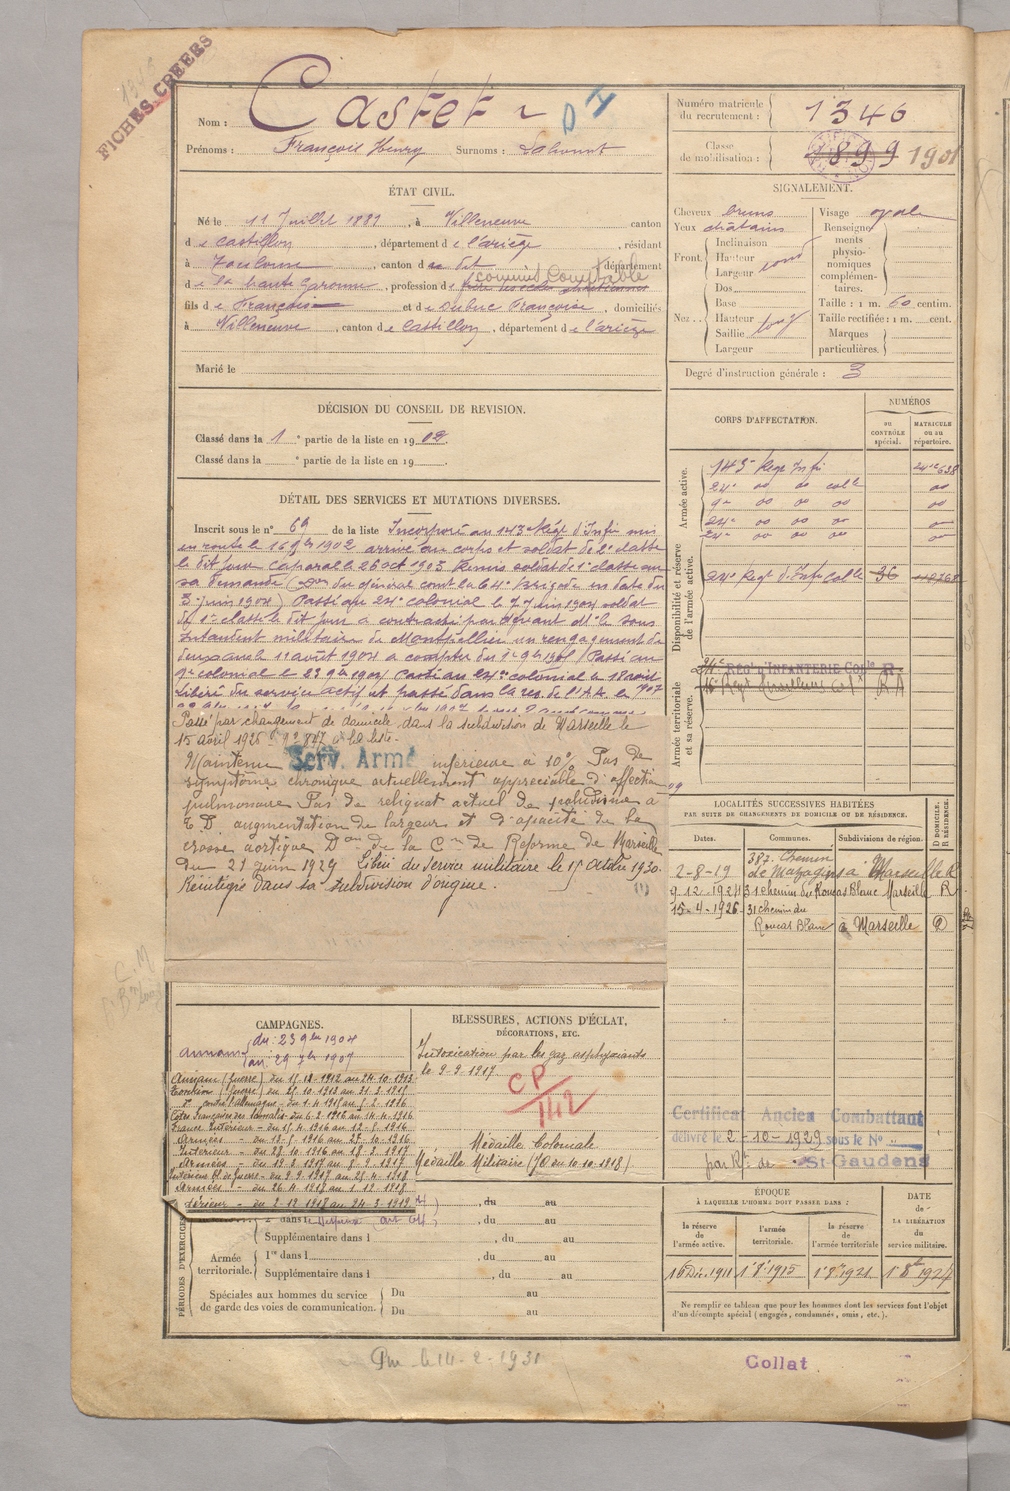 FICHES CRÉÉES
Nom : Castet
Prénoms : François Henry Surnoms :
Numéro matricule du recrutement : 1346
Classe de mobilisation : 1899 1901
ÉTAT CIVIL.
Né le 11 Juillet 1881, à Villeneuve canton
de Castillon, département de l'ariège, résidant
à Toulouse, canton du dit département
de la haute Garonne, profession de commis comptable
fils de François et de Dubuc Françoise, domiciliés
à Villeneuve, canton de Castillon, département de l'ariège
Marié le
SIGNALEMENT.
Cheveux bruns Visage ovale
Yeux châtains Renseignements physionomiques complémentaires.
Front. Inclinaison
Hauteur
Largeur
Nez.. Dos
Base
Hauteur
Saillie
Largeur
Taille : 1 m. 60 centim.
Taille rectifiée : 1 m. cent.
Marques particulières.
Degré d'instruction générale : 3
DÉCISION DU CONSEIL DE REVISION.
Classé dans la 1e partie de la liste en 1902.
Classé dans la e partie de la liste en 19
DÉTAIL DES SERVICES ET MUTATIONS DIVERSES.
Inscrit sous le n° 69 de la liste Incorporé au 143e Régt d'Infie mis
en route le 16 9bre 1902 arrivé au corps et soldat de 2e classe
le dit jour Caporal le 26 oct 1903 Remis soldat de 1e classe sur
sa demande (Don du général comt la 64e brigade en date du
3 juin 1904) Passé au 24e colonial le 7 Juin 1904 soldat
de 1e classe le dit jour a contracté par devant Mr le sous
Intendant militaire de Montpellier un rengagement de
deux ans le 1er août 1904 à compter du Passé au
9e colonial le 23 9bre 1904 Passé au 24e colonial le 18 août
Libéré du service actif et passé dans la res. de l'A.A. le
Passé par changement de domicile dans la subdivision de Marseille le
15 avril 1926 n° 847 de la liste.
Maintenu Serv. Armé inférieure à 10% Pas de
symptôme chronique actuellement appreciable d'affection
pulmonaire Pas de reliquat actuel de paludisme a
T D augmentation de largeur et d'opacité de la
crosse aortique Don de la Con de Réforme de Marseille
du 21 juin 1929 Libéré du service militaire le 15 octobre 1930.
Réintégré dans sa subdivision d'origine. (1)
CORPS D'AFFECTATION.
NUMÉROS
au CONTRÔLE spécial.
MATRICULE ou au répertoire.
Armée active.
143e Regt Infie
24e do do colle do
9e do do do do
24e do do do
24e do do do
Disponibilité et réserve de l'armée active.
24e Regt d'Infie Colle 36
Armée territoriale et sa réserve.
24e RÉGt D'INFANTERIE COLle R.
LOCALITÉS SUCCESSIVES HABITÉES
PAR SUITE DE CHANGEMENTS DE DOMICILE OU DE RÉSIDENCE.
Dates. Communes. Subdivisions de région. D DOMICILE. R RÉSIDENCE.
2-8-19 387. Chemin de Mazargues à Marseille R
9-12-1924 31 chemin du Roucas Blanc Marseille R
15-4-1926 31 chemin du Roucas Blanc à Marseille D
CAMPAGNES.
Annam du 23 9bre 1904
au 29 7bre 1907
Annam (Guerre) du 15-12-1912 au 24-10-1913
Tonkin (Guerre) du 25-10-1913 au 31-3-1915
do contre l'allemagne - du 1-4-1915 au 5-2-1916
Côtes françaises des Somalis - du 6-2-1916 au 14-4-1916
France Intérieur - du 15-4-1916 au 12-5-1916
Armées - du 13-5-1916 au 27-10-1916
Intérieur - du 28-10-1916 au 18-3-1917
Armées - du 19-3-1917 au 8-9-1917
Intérieur Bl. de Guerre - du 9-9-1917 au 25-4-1918
Armées - du 26-4-1918 au 1-12-1918
Intérieur - du 2-12-1918 au 24-3-1919
BLESSURES, ACTIONS D'ÉCLAT,
DÉCORATIONS, ETC.
Intoxication par les gaz asphyxiants
le 9-9-1917
CP
142
Médaille Coloniale
Médaille Militaire (JO du 10-10-1918)
Certificat Ancien Combattant
délivré le 2-10-1929 sous le N°
par Rt de St-Gaudens
PÉRIODES D'EXERCICES
, du au
2e dans le , du au
Supplémentaire dans l , du au
Armée territoriale.
1re dans l , du au
Supplémentaire dans l , du au
Spéciales aux hommes du service de garde des voies de communication.
Du au
Du au
ÉPOQUE
À LAQUELLE L'HOMME DOIT PASSER DANS :
la réserve de l'armée active.
l'armée territoriale.
la réserve de l'armée territoriale
DATE DE LA LIBÉRATION du service militaire.
16 Déc. 1911 1 8bre 1915 1 8bre 1921 1 8bre 1927
Ne remplir ce tableau que pour les hommes dont les services font l'objet
d'un décompte spécial (engagés, condamnés, omis, etc.).
le 14-2-1931
Collat